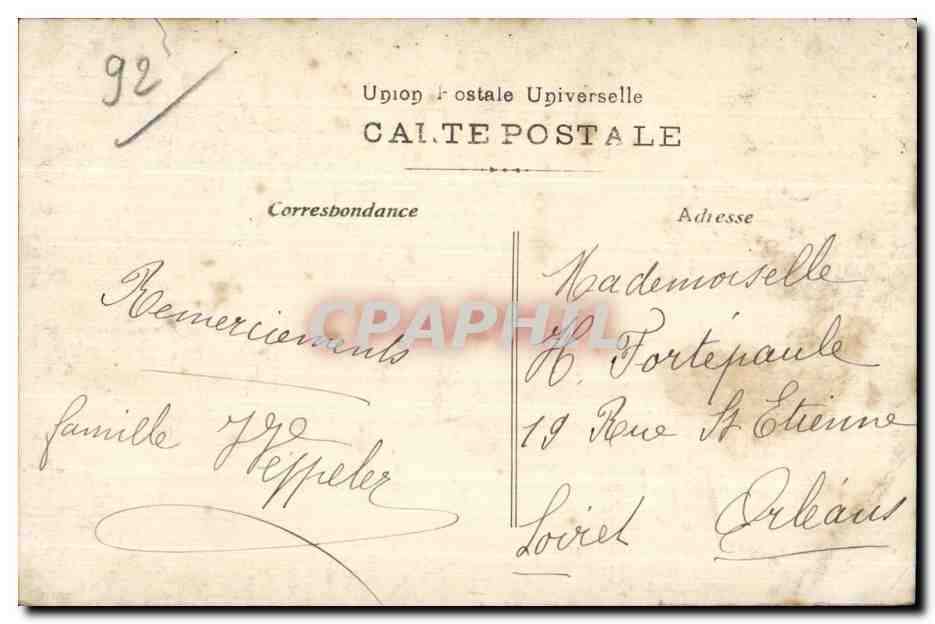 92
Union Postale Universelle
CARTE POSTALE
Correspondance
Adresse
Remerciements
famille
Mademoiselle
H. Fortépaule
19 Rue St Etienne
Loiret Orléans
CPAPHIL